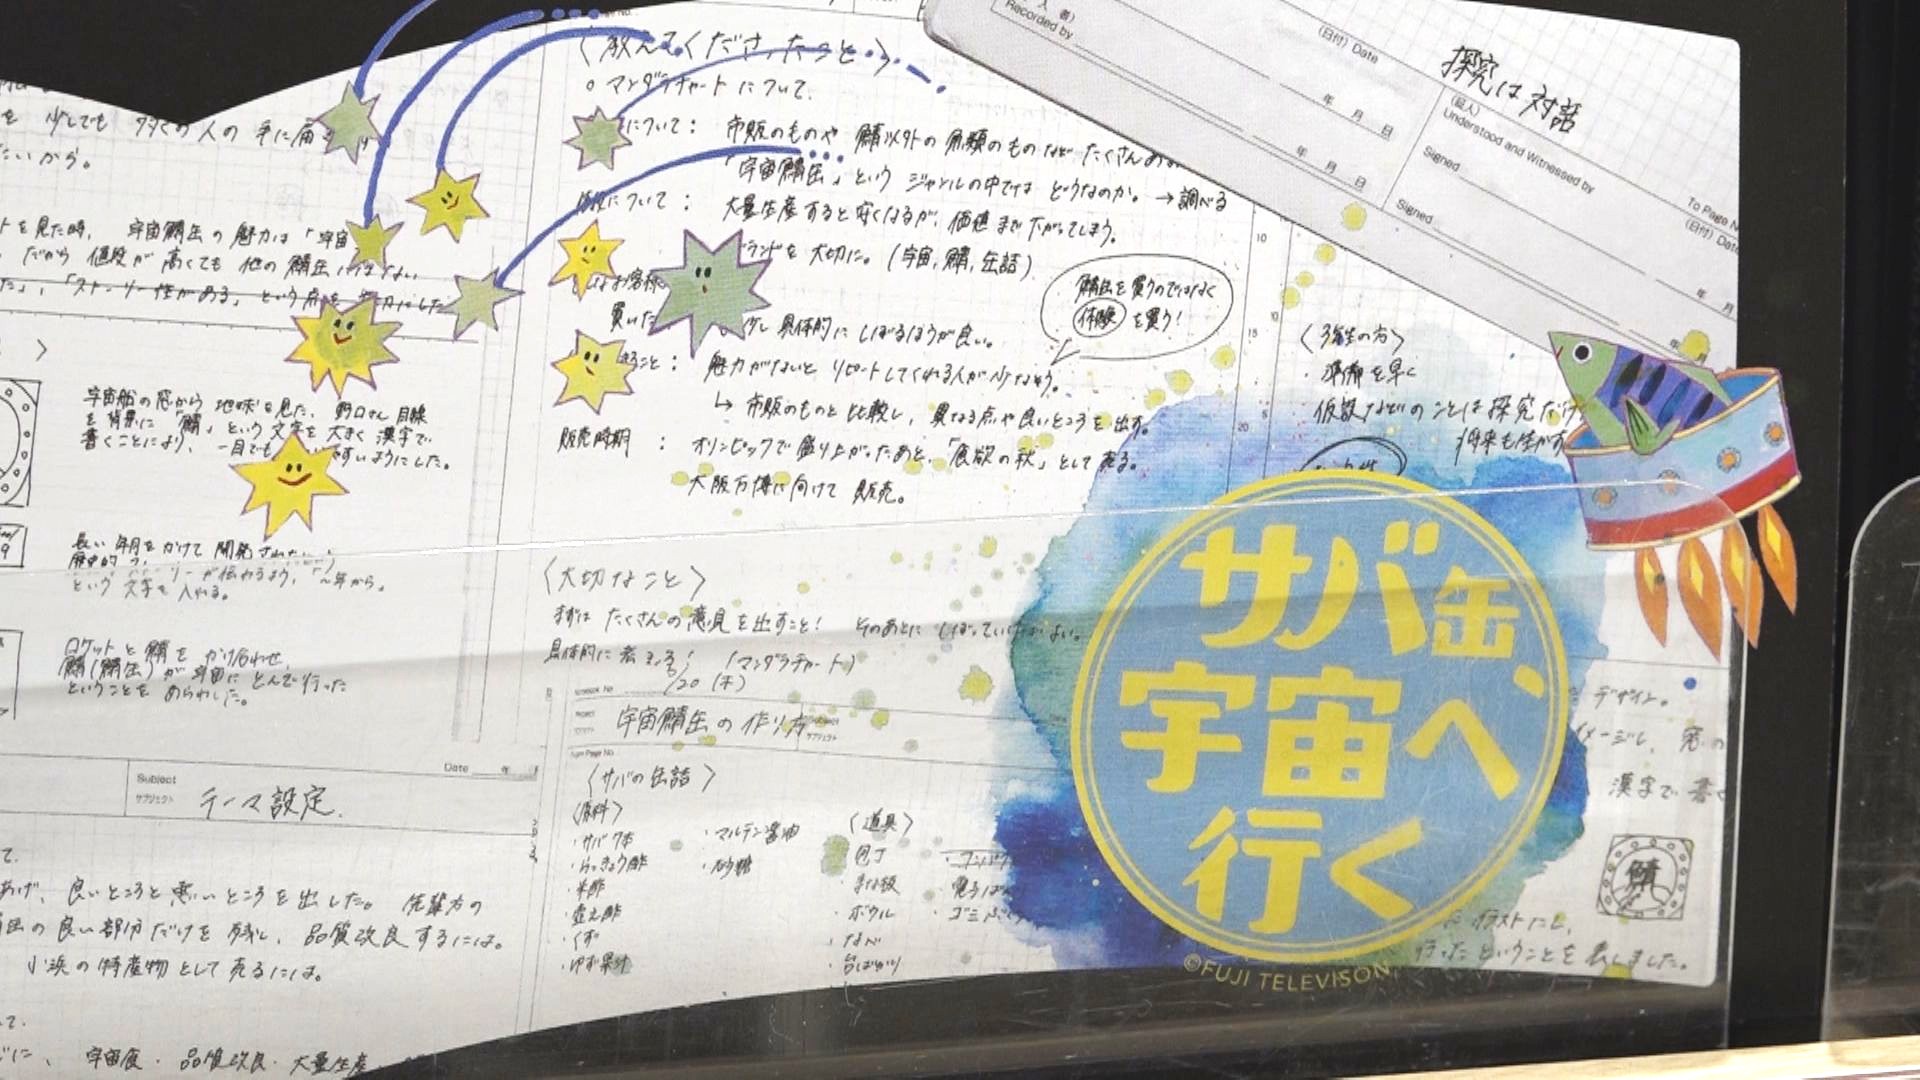 を 少しでも 多くの人の 手に届
たいから。
トを見た時、 宇宙鯖缶の魅力は「宇宙
だから 値段が高くても 他の鯖缶
た」、「ストーリー性がある」という点を
宇宙船の窓から 地球を見た、野口さん目線
を背景に「鯖」という文字を大きく漢字で
書くことにより、一目でも すいようにした。
長い年月をかけて開発された
という文字を入れる。 「〜年から。
ロケットと鯖をかけ合わせ、
鯖(鯖缶)が宇宙にとんで行った
ということをあらわした。
Date 年 月
Subject
サブジェクト
テーマ設定.
あげ、良いところと悪いところを出した。 先輩方の
缶の良い部分だけを残し、品質改良するには。
小浜の特産物として売るには。
宇宙食・品質改良・大量生産
〈教えてくださったこと〉
○ マンダラチャートについて.
について: 市販のものや 鯖以外の魚類のものなど たくさん
「宇宙鯖缶」という ジャンルの中では どうなのか。→調べる
について: 大量生産すると安くなるが、価値まで下がってしまう。
ランドを大切に。(宇宙,鯖,缶詰)
お客様
買いた
少し具体的にしぼるほうが良い。
鯖缶を買うのではなく
体験を買う!
こと: 魅力がないと リピートしてくれる人が少なそう。
↳ 市販のものと比較し、異なる点や良いところを出す。
販売時期 : オリンピックで盛り上がったあと、「食欲の秋」として売る。
大阪万博に向けて 販売。
〈大切なこと〉
まずは たくさんの意見を出すこと! そのあとに しぼっていけばよい。
具体的に考える! (マンダラチャート)
/20(木)
宇宙鯖缶の作り方
Subject
サブジェクト
〈サバの缶詰〉
〈原料〉
・サバフィレ
・らっきょう酢
・米酢
・くず
・ゆず果汁
・マルテン醤油
・砂糖
〈道具〉
包丁
・まな板
・ボウル
・なべ
・台ばかり
Recorded by
(日付) Date
年 月 日
年 月 日
探究は対話
(証人)
Understood and Witnessed by
Signed
Signed
To Page N
(日付) Date
年 月
〈3年生の方〉
・準備を早く
仮説などのことは探究だけ
将来も生かす
サバ缶、
宇宙へ
行く
©FUJI TELEVISON
デザイン。
イメージし、窓の
漢字で書く
鯖
イラストにし、
行ったということを表しました。